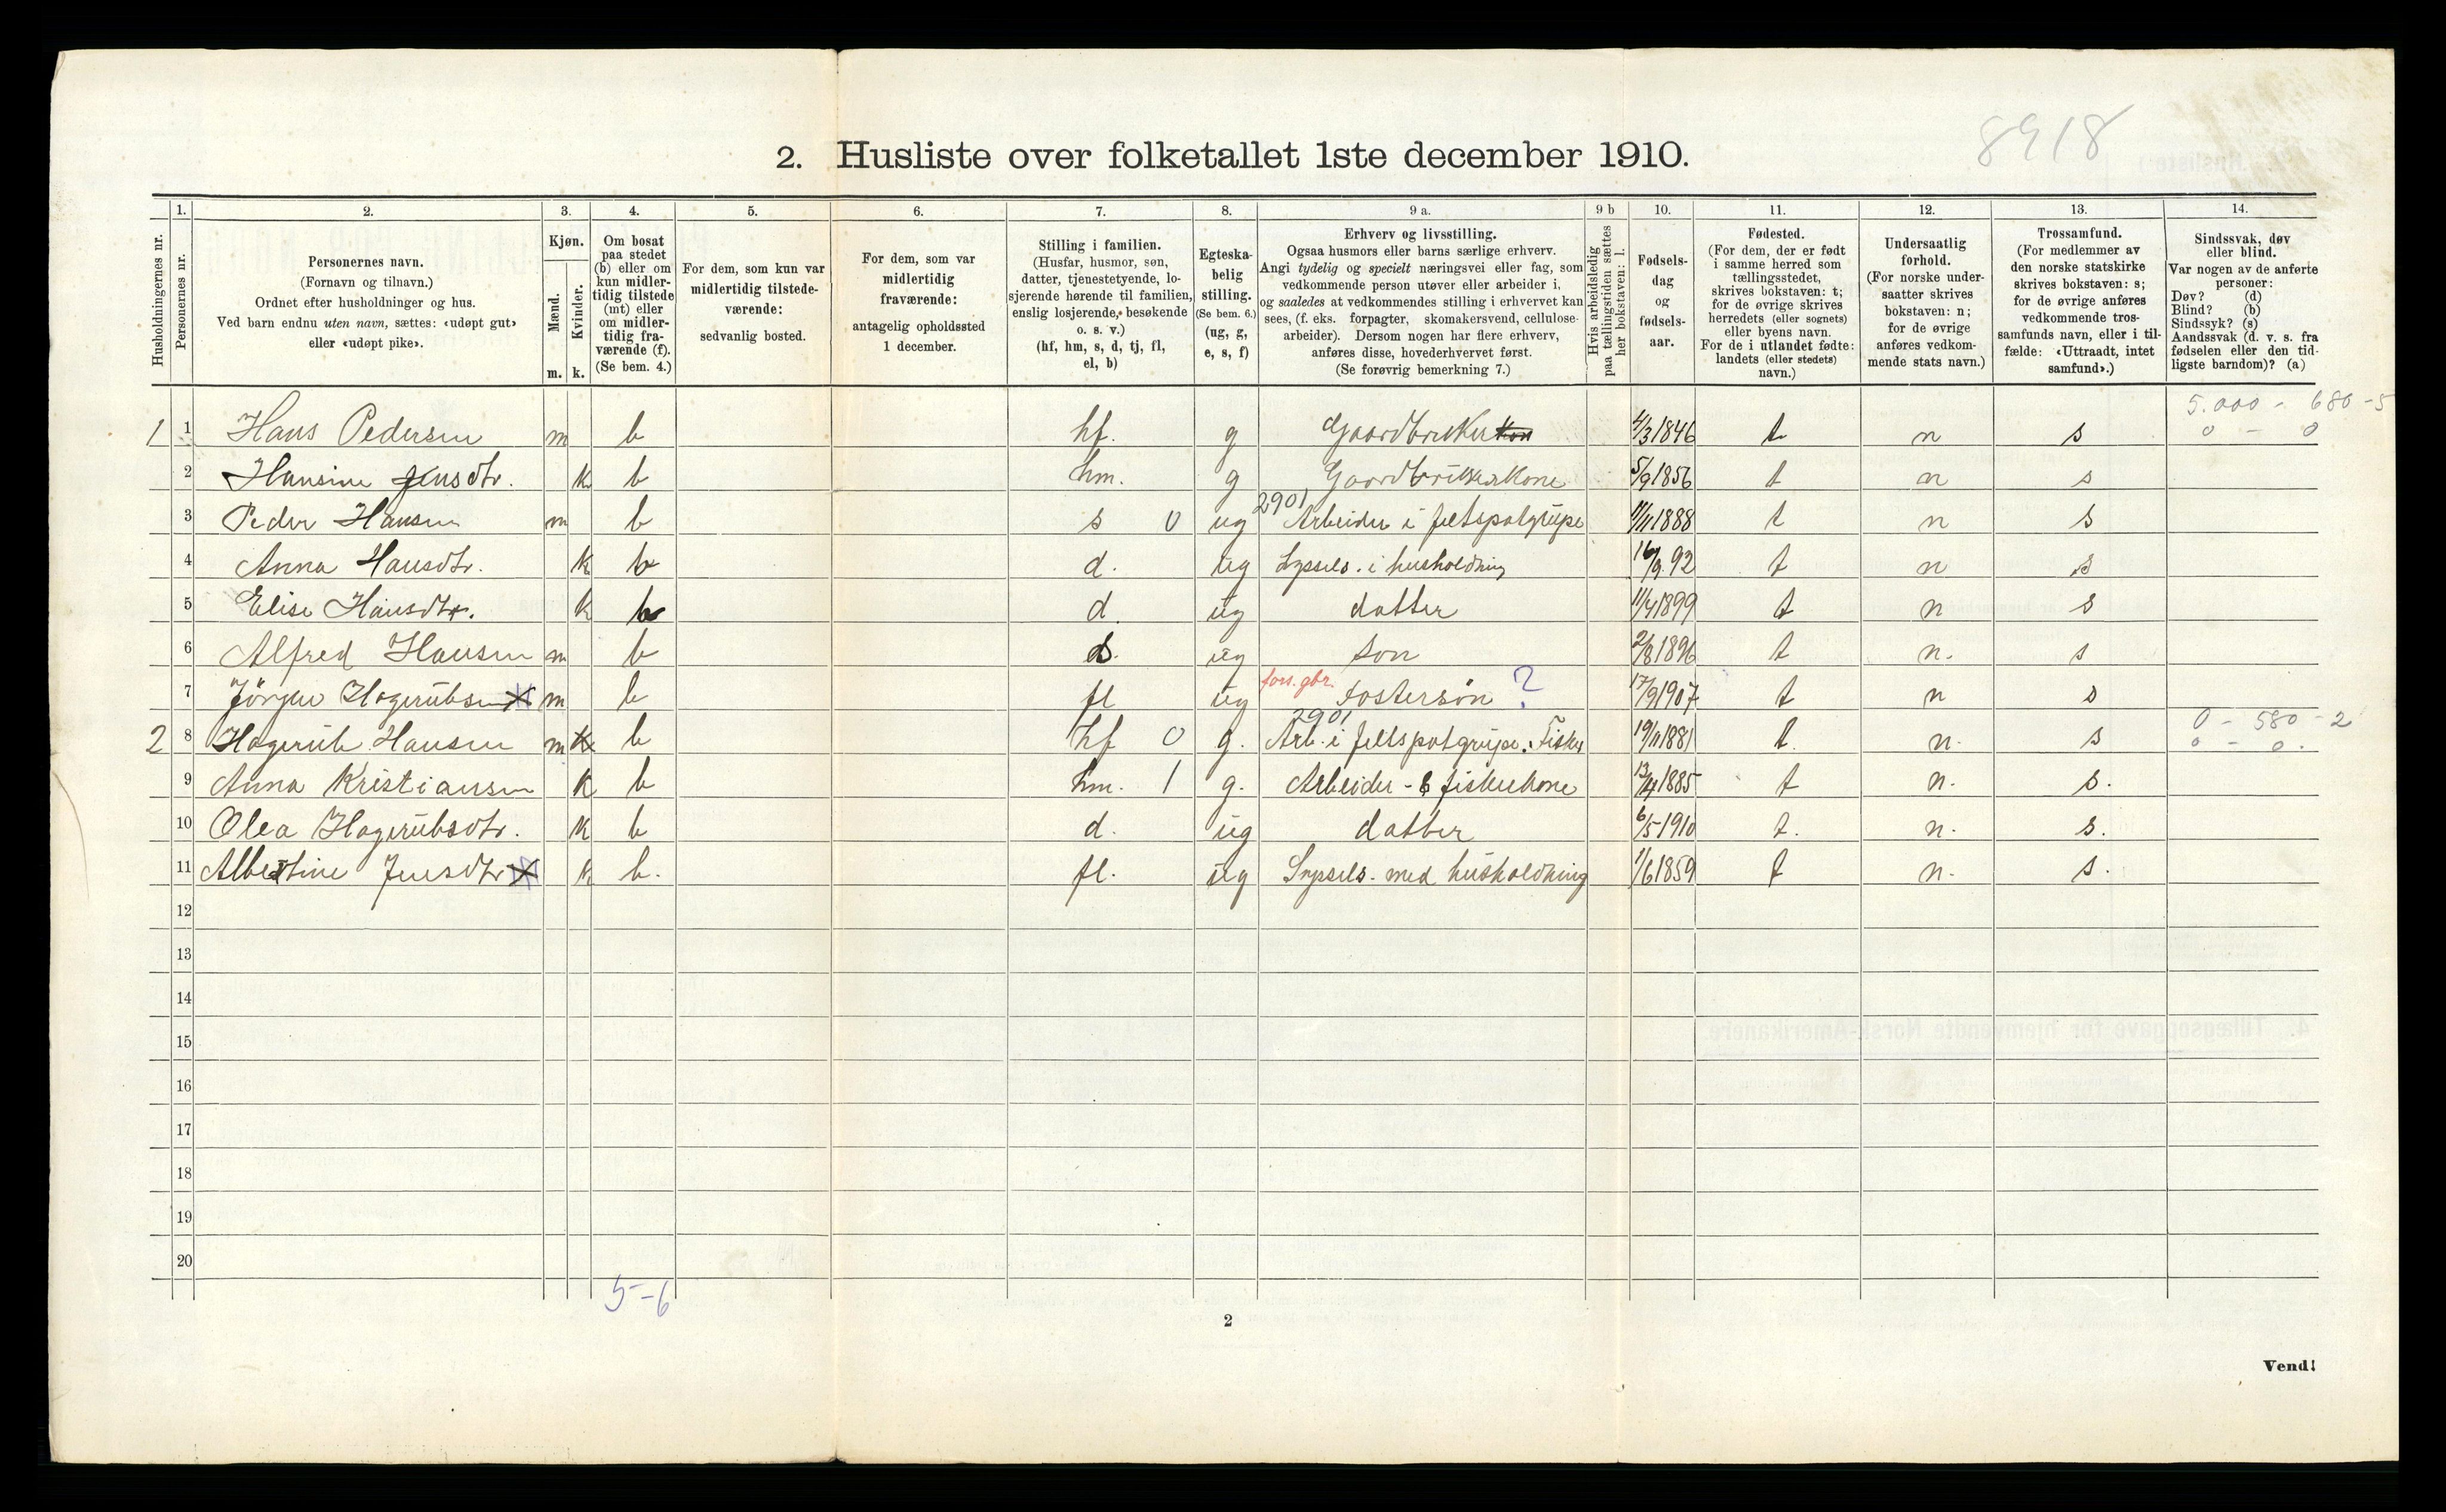 8918
2. Husliste over folketallet 1ste december 1910.
Husholdningernes nr.
1.
Personernes nr.
2.
Personernes navn.
(Fornavn og tilnavn.)
Ordnet efter husholdninger og hus.
Ved barn endnu uten navn, sættes: «udøpt gut»
eller «udøpt pike».
3.
Kjøn.
Mænd.
Kvinder.
m. k.
4.
Om bosat
paa stedet
(b) eller om
kun midler-
tidig tilstede
(mt) eller
om midler-
tidig fra-
værende (f).
(Se bem. 4.)
5.
For dem, som kun var
midlertidig tilstede-
værende:
sedvanlig bosted.
6.
For dem, som var
midlertidig
fraværende:
antagelig opholdssted
1 december.
7.
Stilling i familien.
(Husfar, husmor, søn,
datter, tjenestetyende, lo-
sjerende hørende til familien,
enslig losjerende, besøkende
o. s. v.)
(hf, hm, s, d, tj, fl,
el, b)
8.
Egteska-
belig
stilling.
(Se bem. 6.)
(ug, g,
e, s, f)
9 a.
Erhverv og livsstilling.
Ogsaa husmors eller barns særlige erhverv.
Angi tydelig og specielt næringsvei eller fag, som
vedkommende person utøver eller arbeider i,
og saaledes at vedkommendes stilling i erhvervet kan
sees, (f. eks. forpagter, skomakersvend, cellulose-
arbeider). Dersom nogen har flere erhverv,
anføres disse, hovederhvervet først.
(Se forøvrig bemerkning 7.)
9 b
Hvis arbeidsledig
paa tællingstiden sættes
her bokstaven: l.
10.
Fødsels-
dag
og
fødsels-
aar.
11.
Fødested.
(For dem, der er født
i samme herred som
tællingsstedet,
skrives bokstaven: t;
for de øvrige skrives
herredets (eller sognets)
eller byens navn.
For de i utlandet fødte:
landets (eller stedets)
navn.)
12.
Undersaatlig
forhold.
(For norske under-
saatter skrives
bokstaven: n;
for de øvrige
anføres vedkom-
mende stats navn.)
13.
Trossamfund.
(For medlemmer av
den norske statskirke
skrives bokstaven: s;
for de øvrige anføres
vedkommende tros-
samfunds navn, eller i til-
fælde: «Uttraadt, intet
samfund».)
14.
Sindssvak, døv
eller blind.
Var nogen av de anførte
personer:
Døv? (d)
Blind? (b)
Sindssyk? (s)
Aandssvak (d. v. s. fra
fødselen eller den tid-
ligste barndom)? (a)
5.000 - 680 - 5
1 1 Hans Pedersen m b hf. g Gaardbruker 4/3 1846 t n s 0 - 0
2 Hansine Jensdtr. k b hm. g Gaardbrukerkone 5/9 1856 t n s
2901
3 Peder Hansen m b s 0 ug Arbeider i feltspatgrube 11/11 1888 t n s
4 Anna Hansdtr. k b d. ug Syssels. i husholdning 16/9 92 t n s
5 Elise Hansdtr. k b d. ug datter 11/4 1899 t n s
6 Alfred Hansen m b s. ug son 2/8 1896 t n. s
fors. gbr.
7 Jörgen Hagerubsen X m b fl ug Fostersøn ? 17/9 1907 t n s
2901 0 - 580 - 2
2 8 Hagerub Hansen m k b hf 0 g. Arb. i feltspatgrube. Fisker 19/11 1881 t. n. s 0 - 0.
9 Anna Kristiansen k b hm. 1 g. Arbeider - & fiskerkone 13/4 1885 t n. s.
10 Olea Hagerubsdtr. k b d. ug datter 6/5 1910 t. n. s.
11 Albertine Jensdtr X k b. fl. ug Syssels. med husholdning 1/6 1859 t n. s.
12
13
14
15
16
17
18
19
20
5-6
2
Vend!